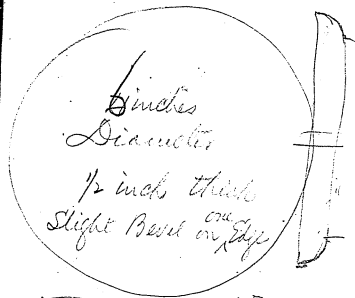 6 inches
Diameter
1/2 inch thick
Slight Bevel on one Edge